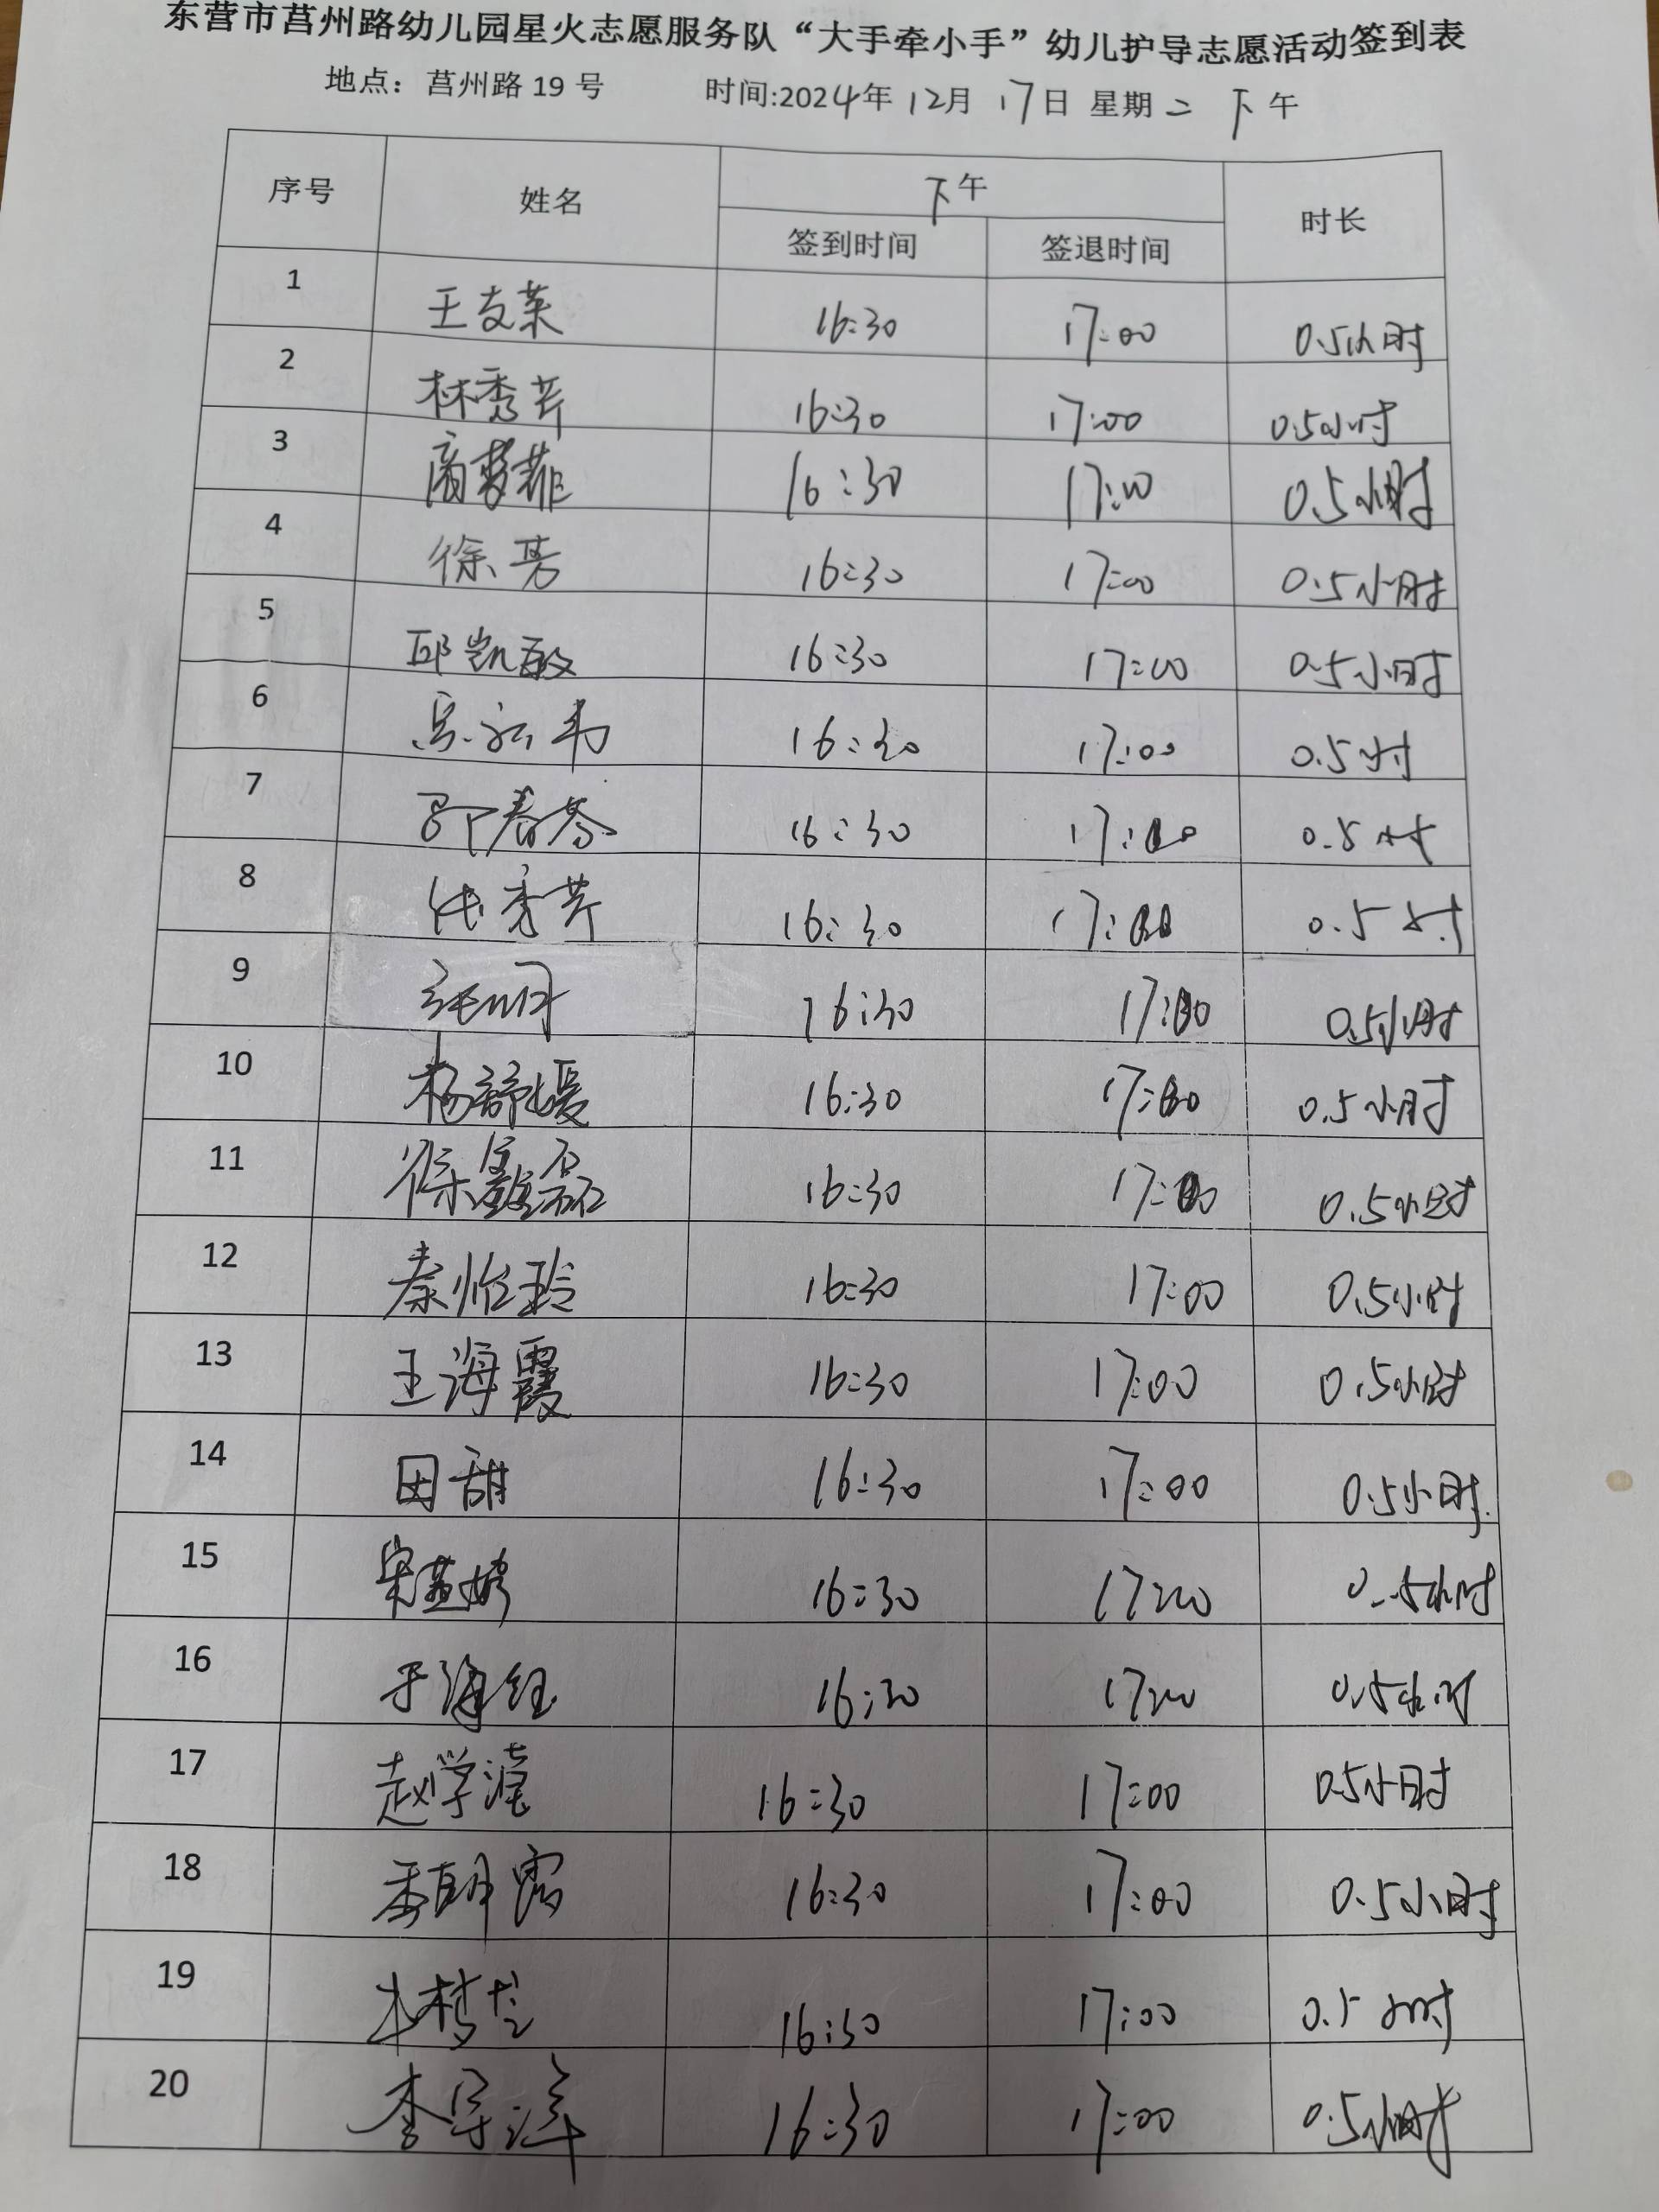 东营市莒州路幼儿园星火志愿服务队“大手牵小手”幼儿护导志愿活动签到表
地点：莒州路 19 号 时间:2024年 12月 17日 星期二 下午
序号 姓名 下午 时长
签到时间 签退时间
1 王支莱 16:30 17:00 0.5小时
2 林秀芹 16:30 17:00 0.5小时
3 商梦菲 16:30 17:00 0.5小时
4 徐芳 16:30 17:00 0.5小时
5 邱凯敏 16:30 17:00 0.5小时
6 16:30 17:00 0.5小时
7 16:30 17:00 0.5小时
8 秀芹 16:30 17:00 0.5小时
9 16:30 17:00 0.5小时
10 杨舒媛 16:30 17:00 0.5小时
11 徐鑫磊 16:30 17:00 0.5小时
12 秦怡玲 16:30 17:00 0.5小时
13 王海霞 16:30 17:00 0.5小时
14 田甜 16:30 17:00 0.5小时
15 宋燕娉 16:30 17:00 0.5小时
16 于海钰 16:30 17:00 0.5小时
17 赵学滢 16:30 17:00 0.5小时
18 季朝霞 16:30 17:00 0.5小时
19 16:30 17:00 0.5小时
20 李 16:30 17:00 0.5小时